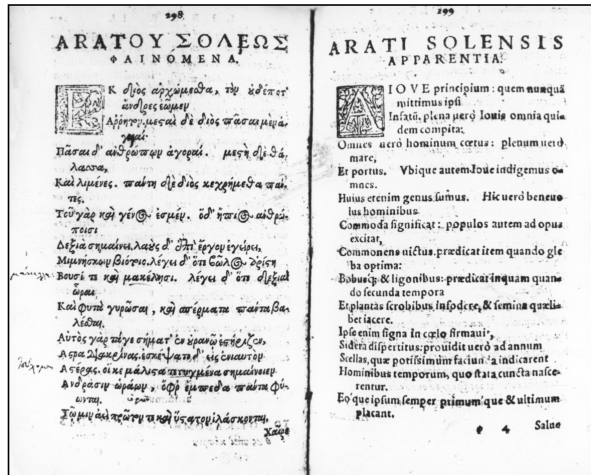 298
ΑΡΑΤΟΥ ΣΟΛΕΩΣ
ΦΑΙΝΟΜΕΝΑ.
ΕΚ διὸς ἀρχώμεσθα, τὸν
ἄνδρες ἐῶμεν
Ἄρρητον. μεσταὶ δὲ διὸς πᾶσαι μὲν
Πᾶσαι δ' ἀνθρώπων ἀγοραί. μεστὴ δὲ θά-
λασσα,
Καὶ λιμένες. πάντη δὲ διὸς κεχρήμεθα πάν-
τες.
Τοῦ γὰρ καὶ γένος ἐσμέν. ὁ δ' ἤπιος ἀνθρώ-
ποισι
Δεξιὰ σημαίνει, λαοὺς δ' ἐπὶ ἔργον ἐγείρει,
Μιμνήσκων βιότοιο. λέγει δ' ὅτι βῶλος ἀρίστη
Βουσί τε καὶ μακέλῃσι. λέγει δ' ὅτι δεξιαὶ
ὧραι
Καὶ φυτὰ γυρῶσαι, καὶ σπέρματα πάντα βα-
λέσθαι.
Αὐτὸς γὰρ τάγε σήματ' ἐν οὐρανῷ ἐστήριξεν,
Ἄστρα διακρίνας. ἐσκέψατο δ' εἰς ἐνιαυτὸν
Ἀστέρας. οἵ κε μάλιστα τετυγμένα σημαίνοιεν
Ἀνδράσιν ὡράων, ὄφρ' ἔμπεδα πάντα φύ-
ωνται.
πρῶτόν τε καὶ ὕστατον ἱλάσκονται.
Χαῖρε
199
ARATI SOLENSIS
APPARENTIA.
A IOVE principium: quem nunquã
mittimus ipsi
Infatũ. plena uerò Iouis omnia qui-
dem compita:
Omnes uerò hominum cœtus: plenum uerò
mare,
Et portus. Vbique autem Ioue indigemus o-
mnes.
Huius etenim genus sumus. Hic uerò beneuo-
lus hominibus
Commoda significat: populos autem ad opus
excitat,
Commonens uictus. prædicat item quando gle-
ba optima:
Bobusq; & ligonibus: prædicat inquam quan-
do secunda tempora
Et plantas scrobibus infodere, & semina quæli-
bet iacere.
Ipse enim signa in cœlo firmauit,
Sidera dispertitus: prouidit uerò ad annum
Stellas, quæ potissimum indicarent
Hominibus temporum, quo stata cuncta nasce-
rentur.
Eo'que ipsum semper primum'que & ultimum
placant.
e 4 Salue